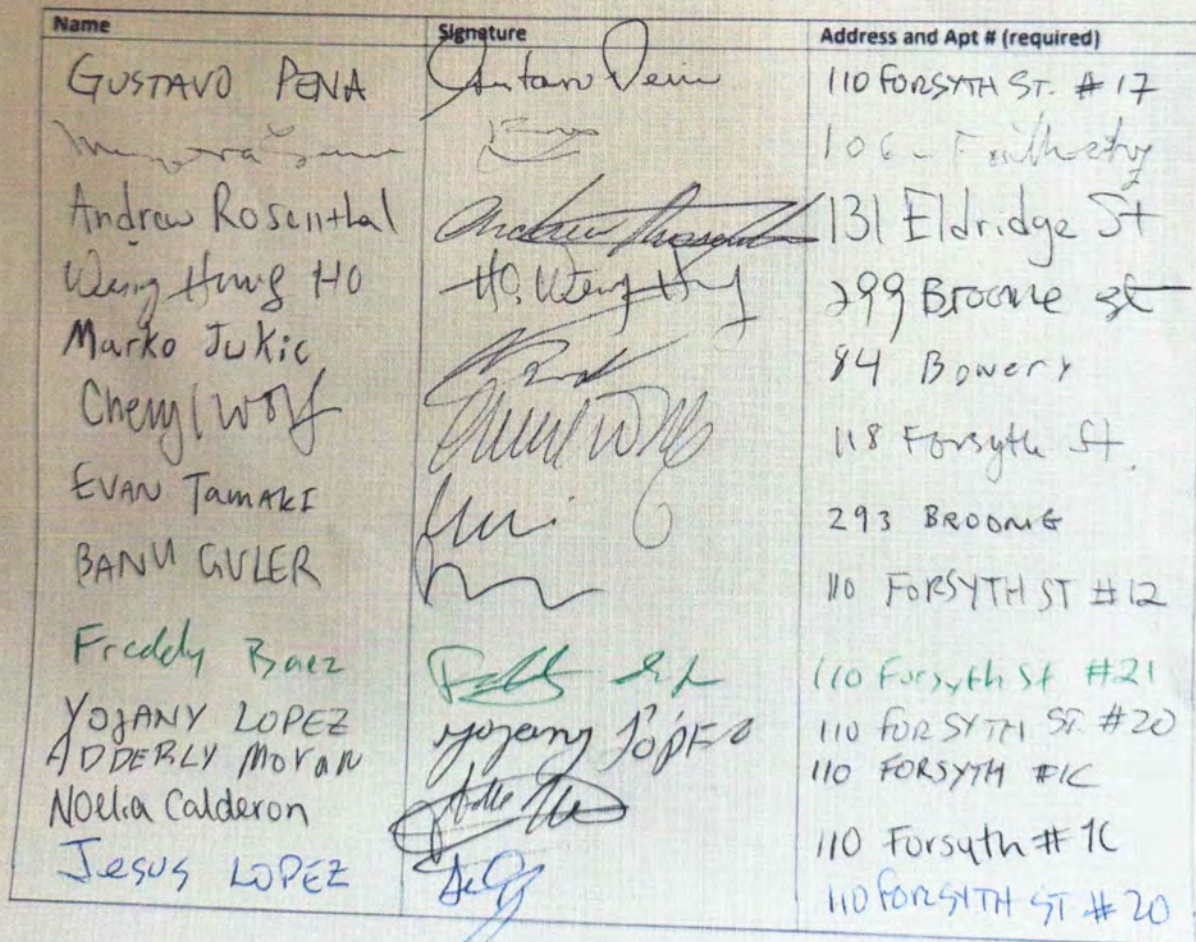 Name Signature Address and Apt # (required)
GUSTAVO PENA 110 FORSYTH ST. # 17
106
Andrew Rosenthal Andrew Rosenthal 131 Eldridge St
Weng Hung HO HO, Weng Hung 299 Broome st
Marko Jukic 84 Bowery
Cheryl Wolf Cheryl Wolf 118 Forsyth St.
EVAN TamAKI 293 BROOME
BANU GULER 110 FORSYTH ST #12
Freddy Baez 110 Forsyth St #21
YOJANY LOPEZ yojany LÓPEZ 110 FORSYTH ST. #20
ADDERLY MoraN 110 FORSYTH #1C
NOelia Calderon 110 Forsyth # 1C
Jesus LOPEZ 110 FORSYTH ST # 20